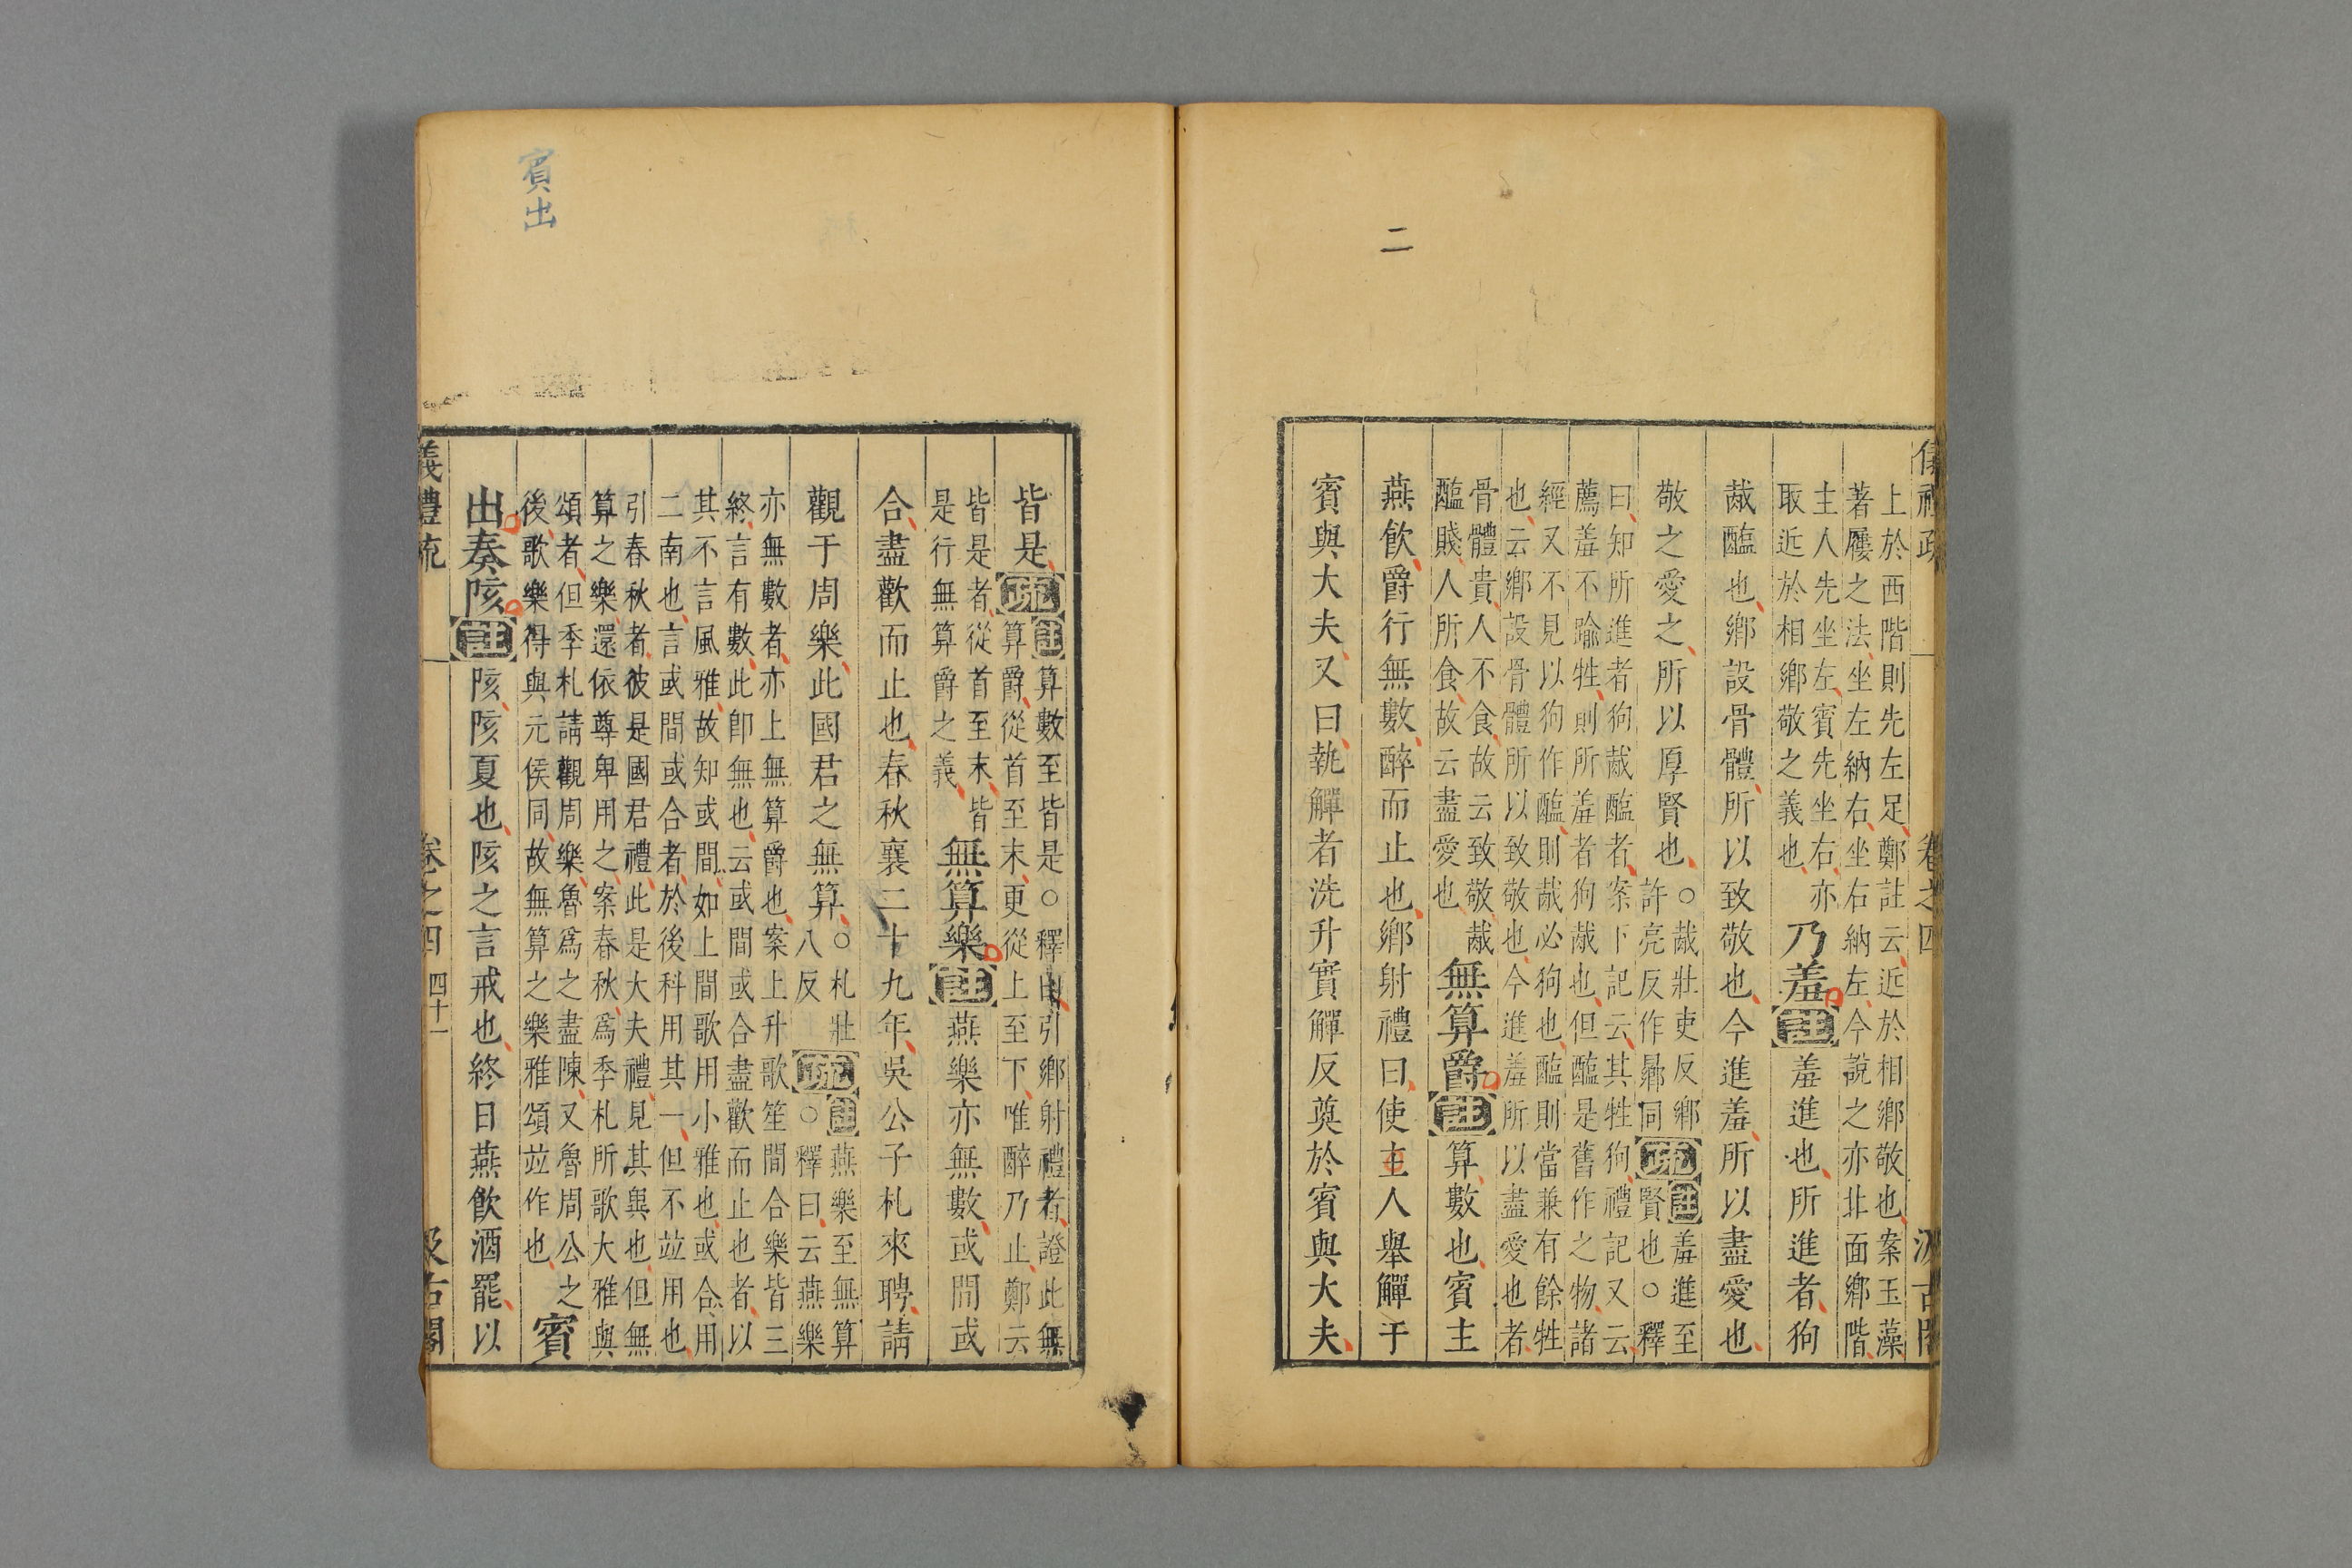 二
上於西階則先左足鄭註云近於相鄉敬也案玉藻
著屨之法坐左納右坐右納左今說之亦北面鄉階
主人先坐左賓先坐右亦
取近於相鄉敬之義也
乃羞註羞進也所進者狗
胾醢也鄉設骨體所以致敬也今進羞所以盡愛也
敬之愛之所以厚賢也○胾壯吏反鄉
許亮反作曏同
疏註羞進至
賢也○釋
曰知所進者狗胾醢者案下記云其牲狗禮記又云
薦羞不踰牲則所羞者狗胾也但醢是舊作之物諸
經又不見以狗作醢則胾必狗也醢則當兼有餘牲
也云鄉設骨體所以致敬也今進羞所以盡愛也者
骨體貴人不食故云致敬胾
醢賤人所食故云盡愛也
無算爵註算數也賓主
燕飲爵行無數醉而止也鄉射禮曰使主人舉觶于
賓與大夫又曰執觶者洗升實觶反奠於賓與大夫
儀禮疏 卷之四 汲古閣
賓出
皆是疏註算數至皆是○釋曰引鄉射禮者證此無
算爵從首至末更從上至下唯醉乃止鄭云
皆是者從首至末皆
是行無算爵之義
無算樂註燕樂亦無數或間或
合盡歡而止也春秋襄二十九年吳公子札來聘請
觀于周樂此國君之無算○札壯
八反
疏註燕樂至無算
○釋曰云燕樂
亦無數者亦上無算爵也案上升歌笙間合樂皆三
終言有數此即無也云或間或合盡歡而止也者以
其不言風雅故知或間如上間歌用小雅也或合用
二南也言或間或合者於後科用其一但不竝用也
引春秋者彼是國君禮此是大夫禮見其異也但無
算之樂還依尊卑用之案春秋爲季札所歌大雅與
頌者但季札請觀周樂魯爲之盡陳又魯周公之
後歌樂得與元侯同故無算之樂雅頌竝作也
賓
出奏陔註陔陔夏也陔之言戒也終日燕飲酒罷以
儀禮疏 卷之四 四十一 汲古閣